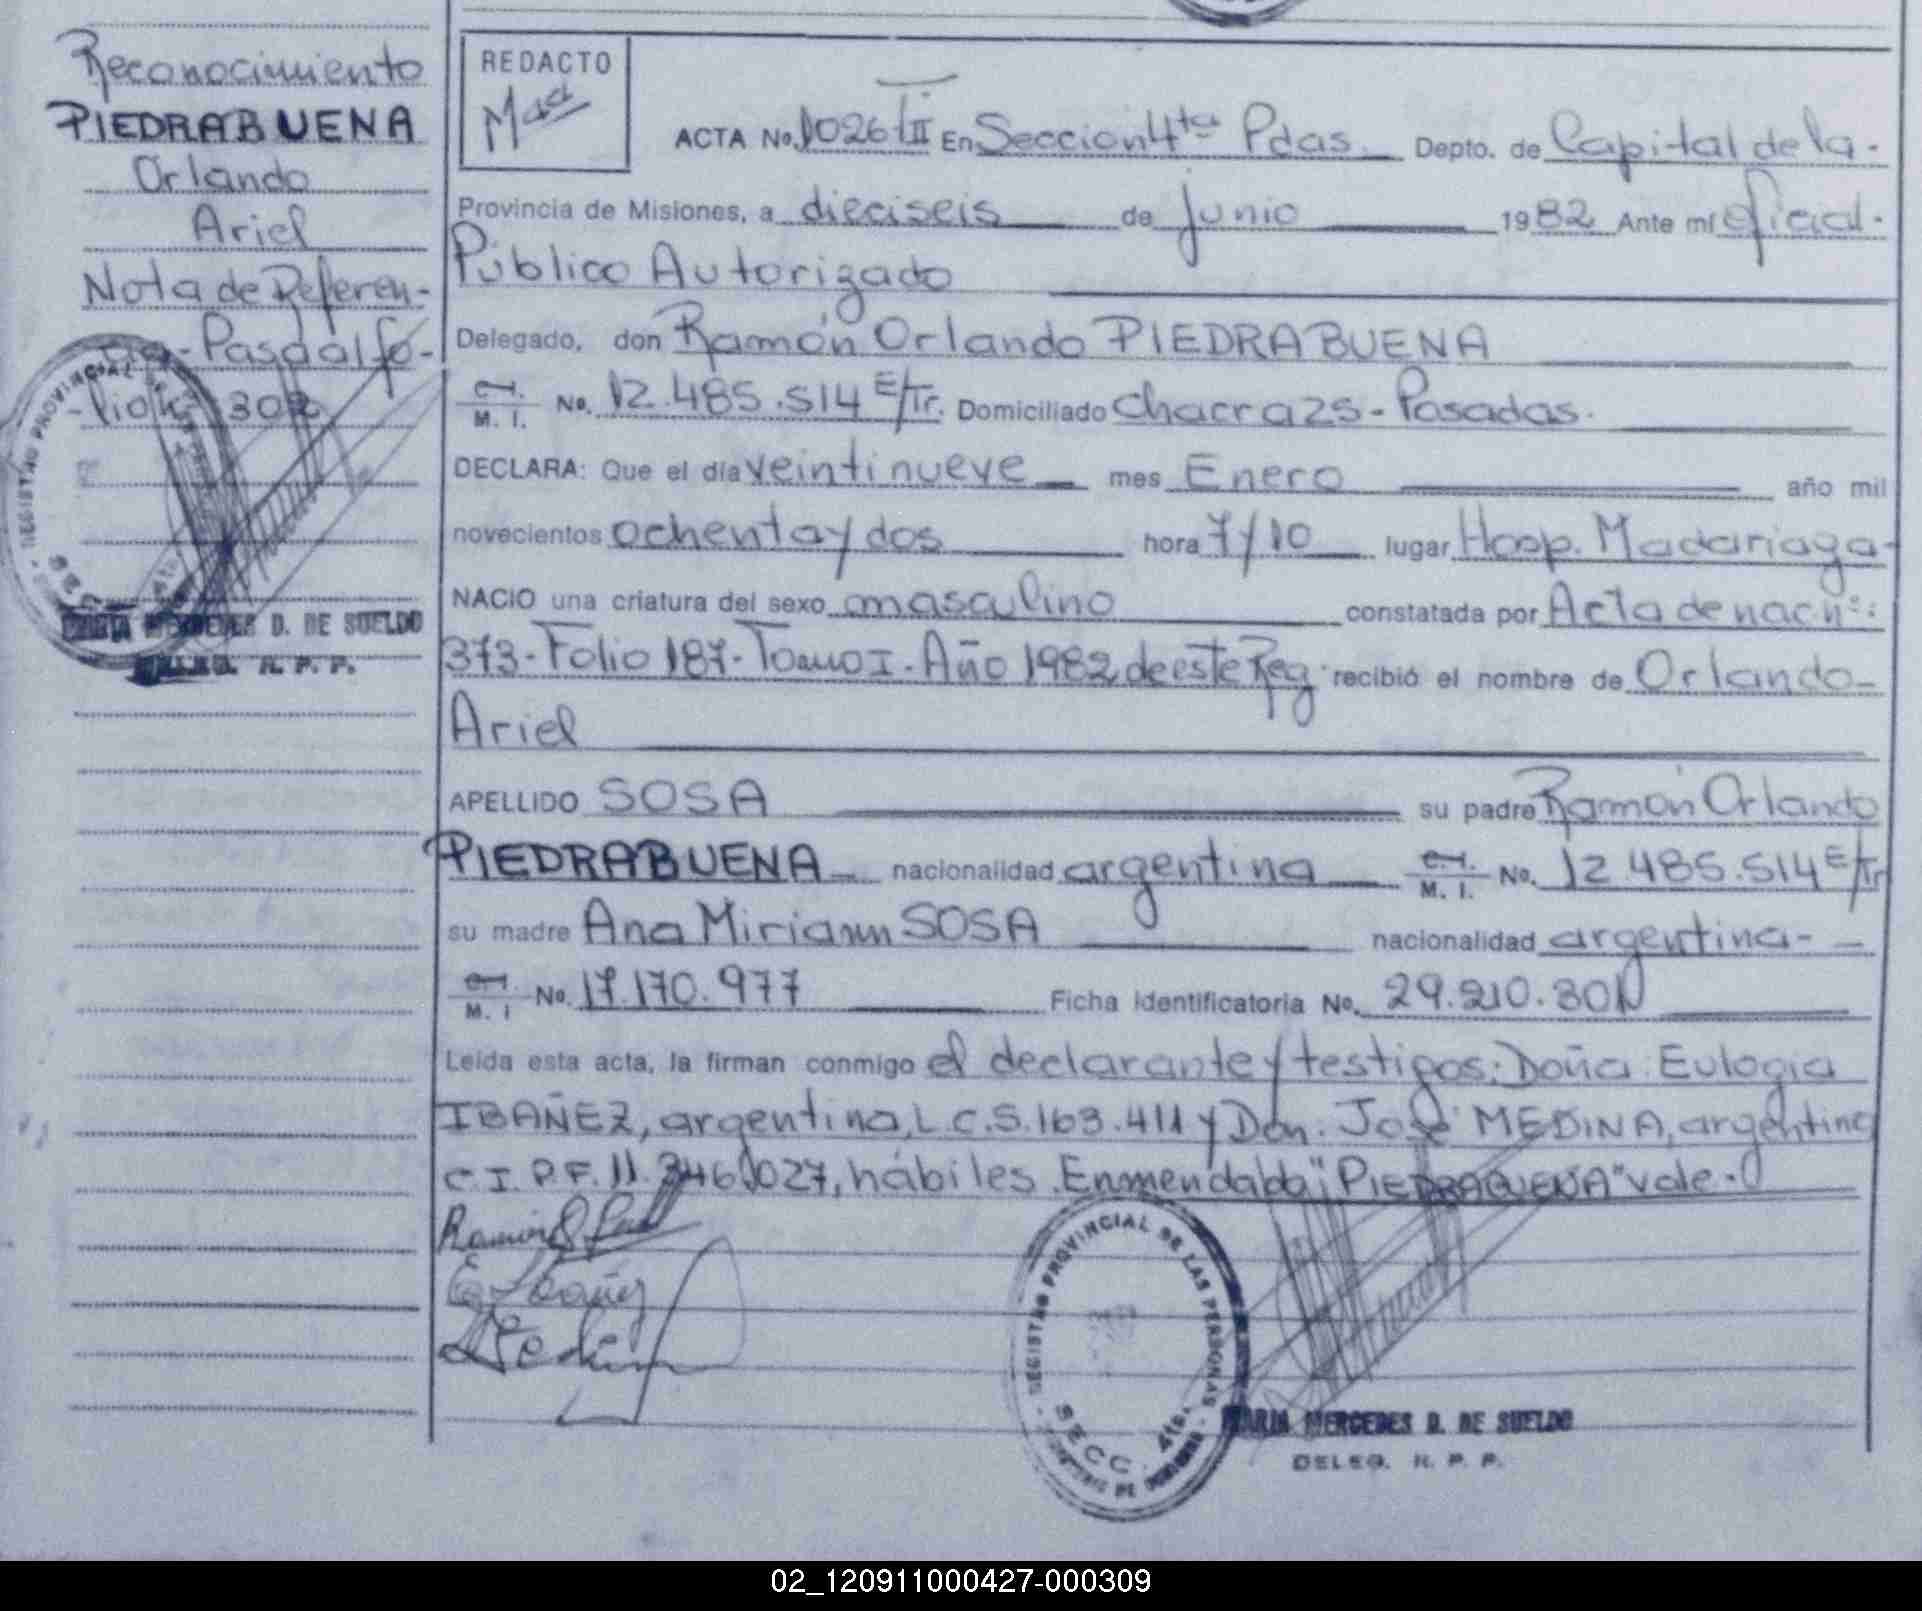 Reconocimiento
PIEDRABUENA
Orlando
Ariel
Nota de Referen-
cia - Pasa al fo-
-lio Nº 302
MARIA MERCEDES D. DE SUELDO
DELEG. R. P. P.
REDACTO
ACTA No. 1026 TII En Seccion 4ta Pdas. Depto. de Capital de la.
Provincia de Misiones, a dieciseis de junio 1982 Ante mí Oficial.
Público Autorizado
Delegado, don Ramón Orlando PIEDRABUENA
C.I. M. I. No. 12.485.514 E/Tr. Domiciliado Chacra 25 - Posadas.
DECLARA: Que el día veintinueve mes Enero año mil
novecientos ochenta y dos hora 7/10 lugar Hosp. Madariaga-
NACIO una criatura del sexo masculino constatada por Acta de nacnº:
373 - Folio 187 - Tomo I - Año 1982 de este Reg. recibió el nombre de Orlando-
Ariel
APELLIDO SOSA su padre Ramón Orlando
PIEDRABUENA nacionalidad argentina C.I. M. I. No. 12.485.514 E/Tr
su madre Ana Miriam SOSA nacionalidad argentina-
C.I. M. I No. 17.170.977 Ficha Identificatoria No. 29.210.301
Leída esta acta, la firman conmigo el declarante y testigos: Doña: Eulogia
IBAÑEZ, argentina, L.C.5.163.411 y Don. José MEDINA, argentino
C.I.P.F. 11.346.027, hábiles. Enmendado "PIEDRABUENA" vale.
Ramón
E. Ibañez
Medina
REGISTRO PROVINCIAL DE LAS PERSONAS
SECC. 4ta.
MARIA MERCEDES D. DE SUELDO
DELEG. R. P. P.
02_120911000427-000309